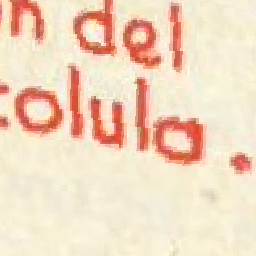 n del
colula.